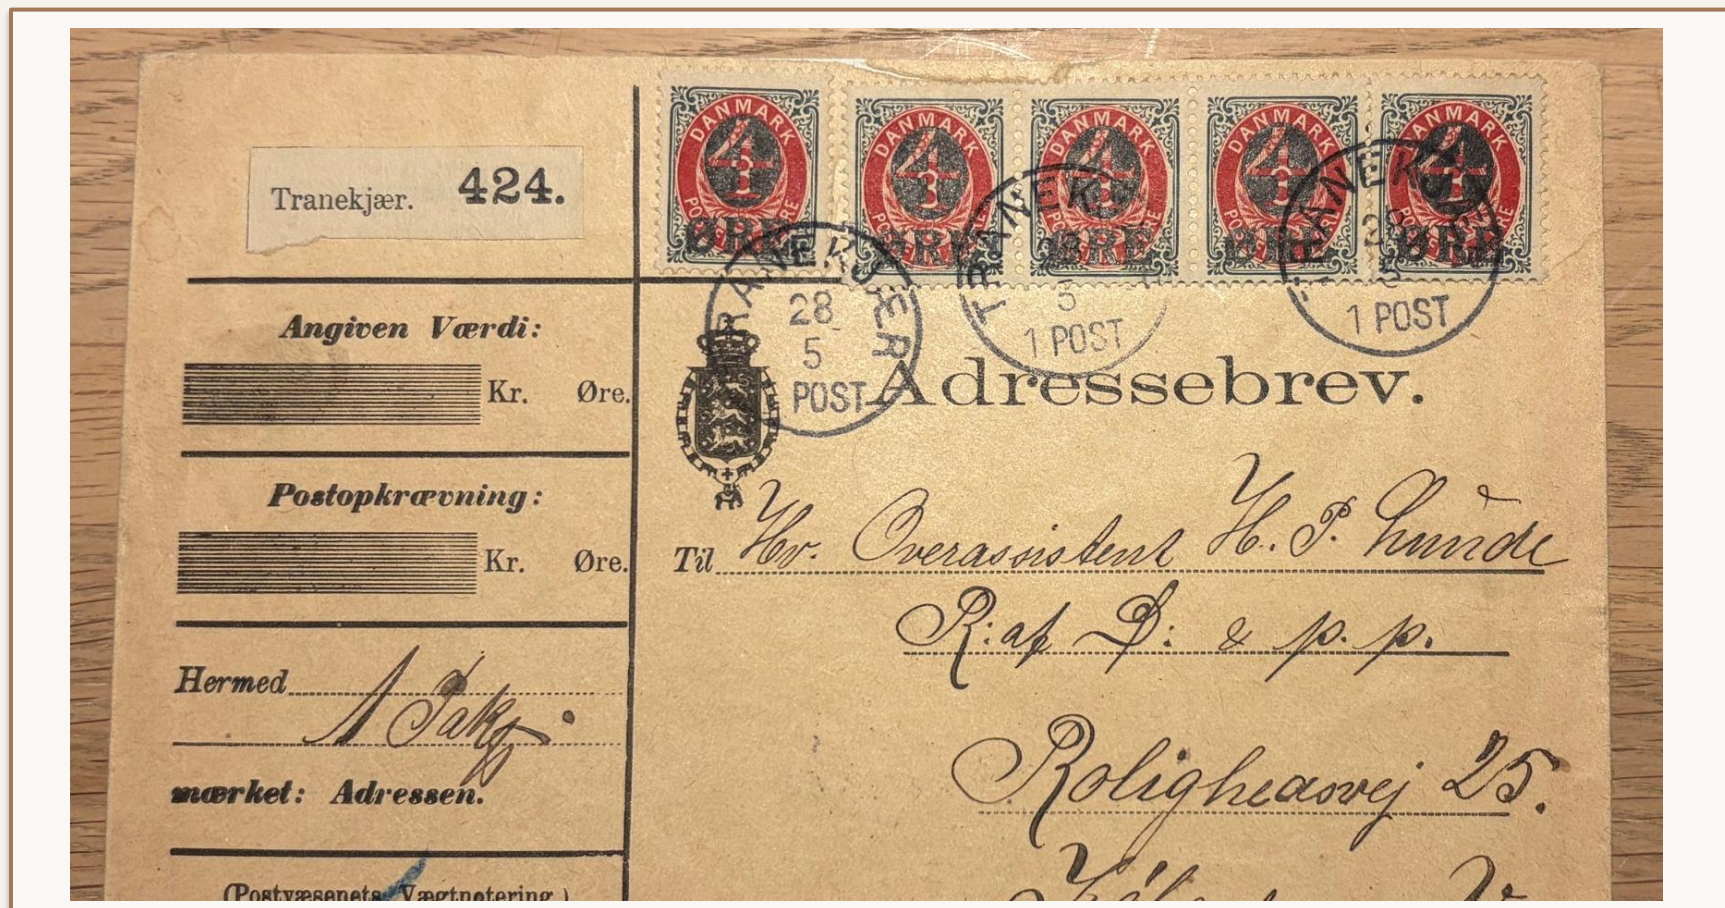 Tranekjær. 424.
DANMARK 4 ØRE
DANMARK 4 ØRE
DANMARK 4 ØRE
DANMARK 4 ØRE
DANMARK 4 ØRE
28
5
POST
TRANEK
28
5
1 POST
1 POST
Angiven Værdi:
Kr. Øre.
Postopkrævning:
Kr. Øre.
Hermed
1 Pakke
mærket: Adressen.
(Postvæsenets Vægtnotering.)
Adressebrev.
Til Hr. Overassistent H. P. Lunde
R: af D: & p. p.
Rolighedsvej 25.